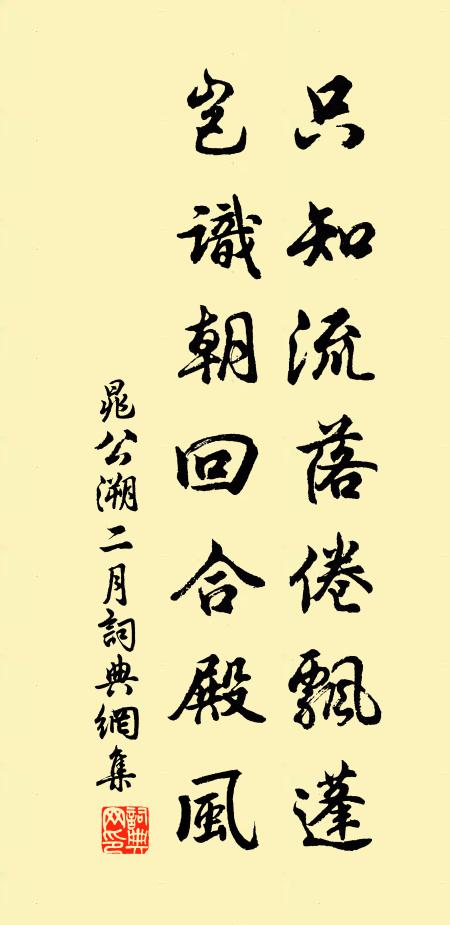 只知流落倦飄蓬
岂識朝回合殿風
晁公溯二月詞典網集
詞典网印